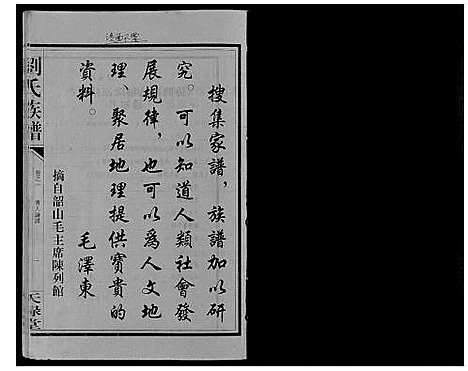 搜集家譜，族譜加以研
究。可以知道人類社會發
展規律，也可以爲人文地
理、聚居地理提供寳貴的
資料。
毛澤東
摘自韶山毛主席陳列館
劉氏族譜
卷之一
一
天祿堂